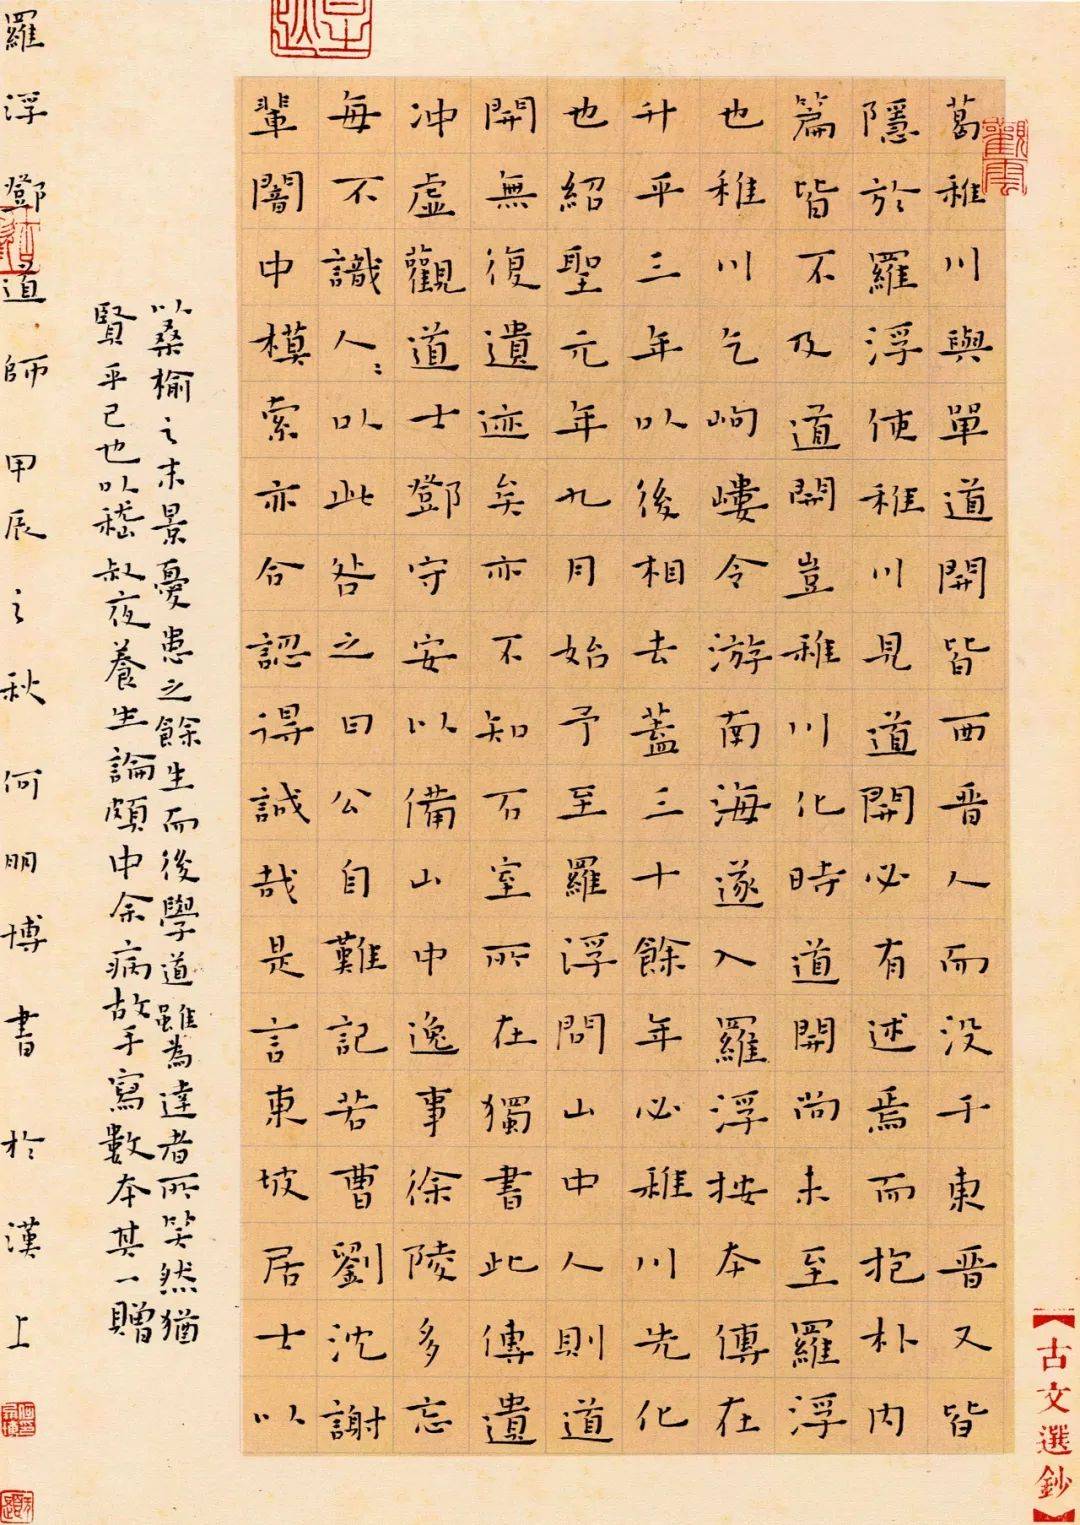 葛稚川與單道開皆西晋人而没于東晋又皆
隱於羅浮使稚川見道開必有述焉而抱朴内
篇皆不及道開豈稚川化時道開尚未至羅浮
也稚川乞岣嶁令游南海遂入羅浮按本傳在
升平三年以後相去蓋三十餘年必稚川先化
也紹聖元年九月始予至羅浮問山中人則道
開無復遺迹矣亦不知石室所在獨書此傳遺
冲虚觀道士鄧守安以備山中逸事徐陵多忘
每不識人〻以此咎之曰公自難記若曹劉沈謝
輩闇中模索亦合認得誠哉是言東坡居士以
以桑榆之末景憂患之餘生而後學道雖為達者所笑然猶
賢乎已也以嵇叔夜養生論頗中余病故手寫數本其一贈
羅浮鄧道師 甲辰之秋何明博書於漢上
古文選鈔
觀雲